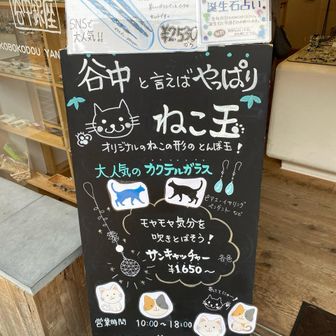 SNSで
大人気!!
¥2530
誕生石占い。
KOBOKODOU YAN
谷中と言えばやっぱり
ねこ玉
オリジナルのねこの形のとんぼ玉!
大人気のカクテルガラス
ピアス・イヤリング
ペンダント など
モヤモヤ気分を
吹きとばそう!
サンキャッチャー
各色
¥1650〜
営業時間 10:00〜18:00